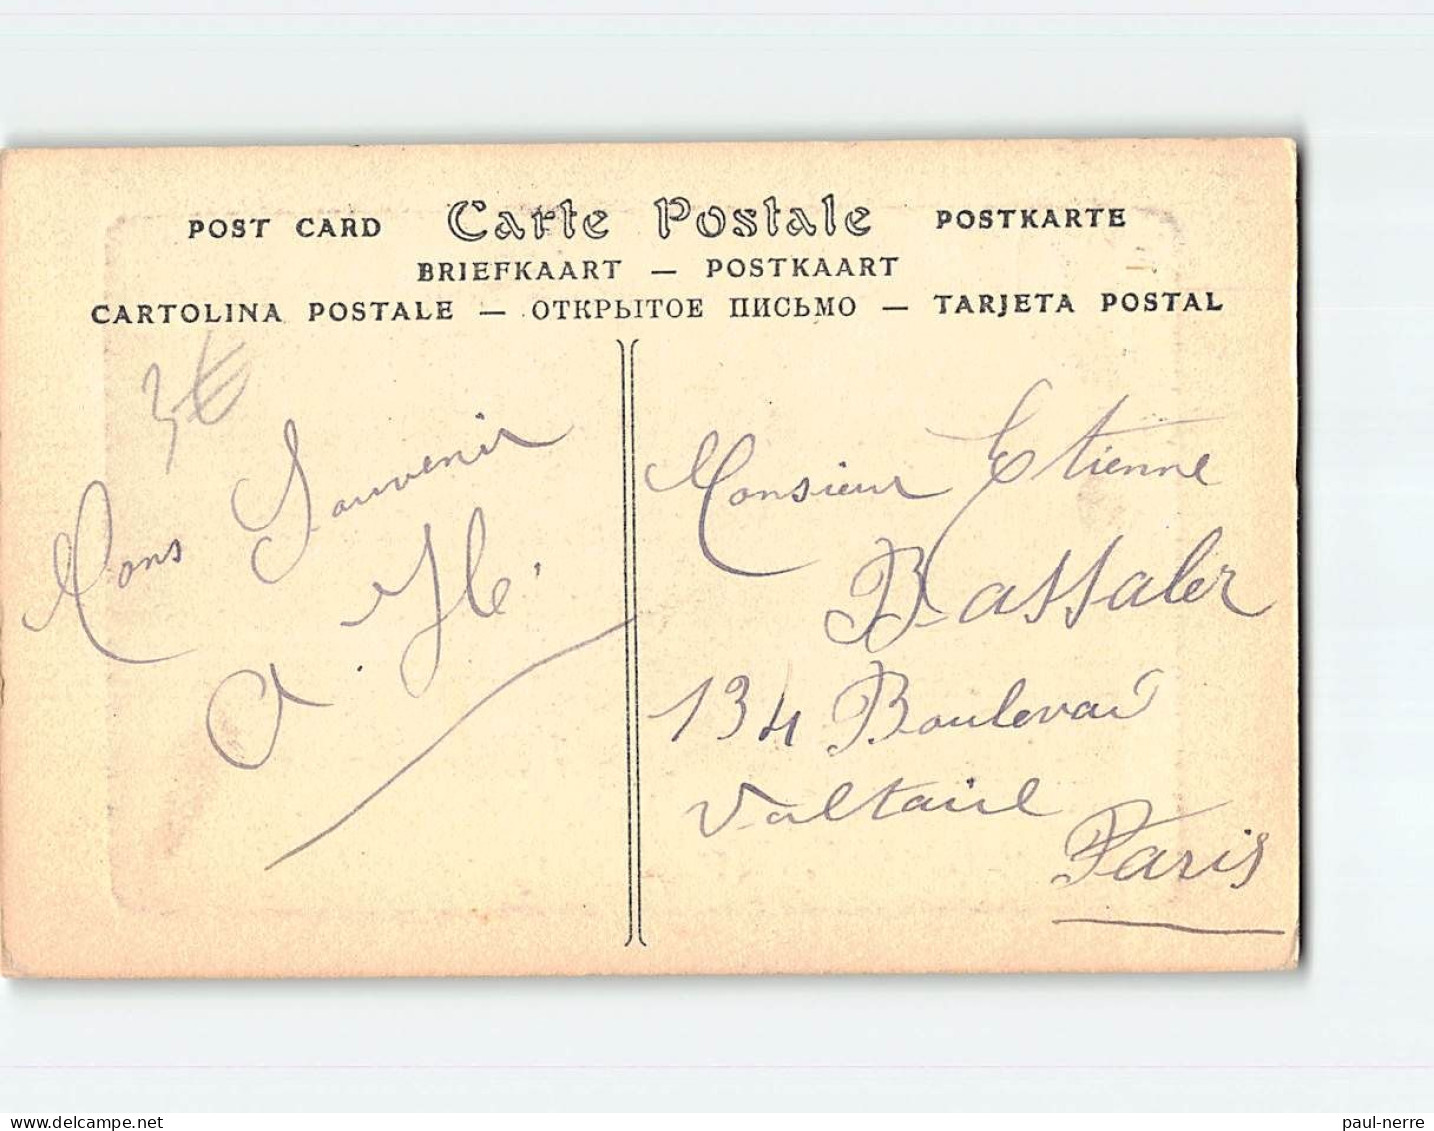 POST CARD Carte Postale POSTKARTE
BRIEFKAART — POSTKAART
CARTOLINA POSTALE — ОТКРЫТОЕ ПИСЬМО — TARJETA POSTAL
3€
Mons Souvenir
A. H.
Monsieur Etienne
Bassaler
134 Boulevard
Voltaire
Paris
delcampe.net
paul-nerre